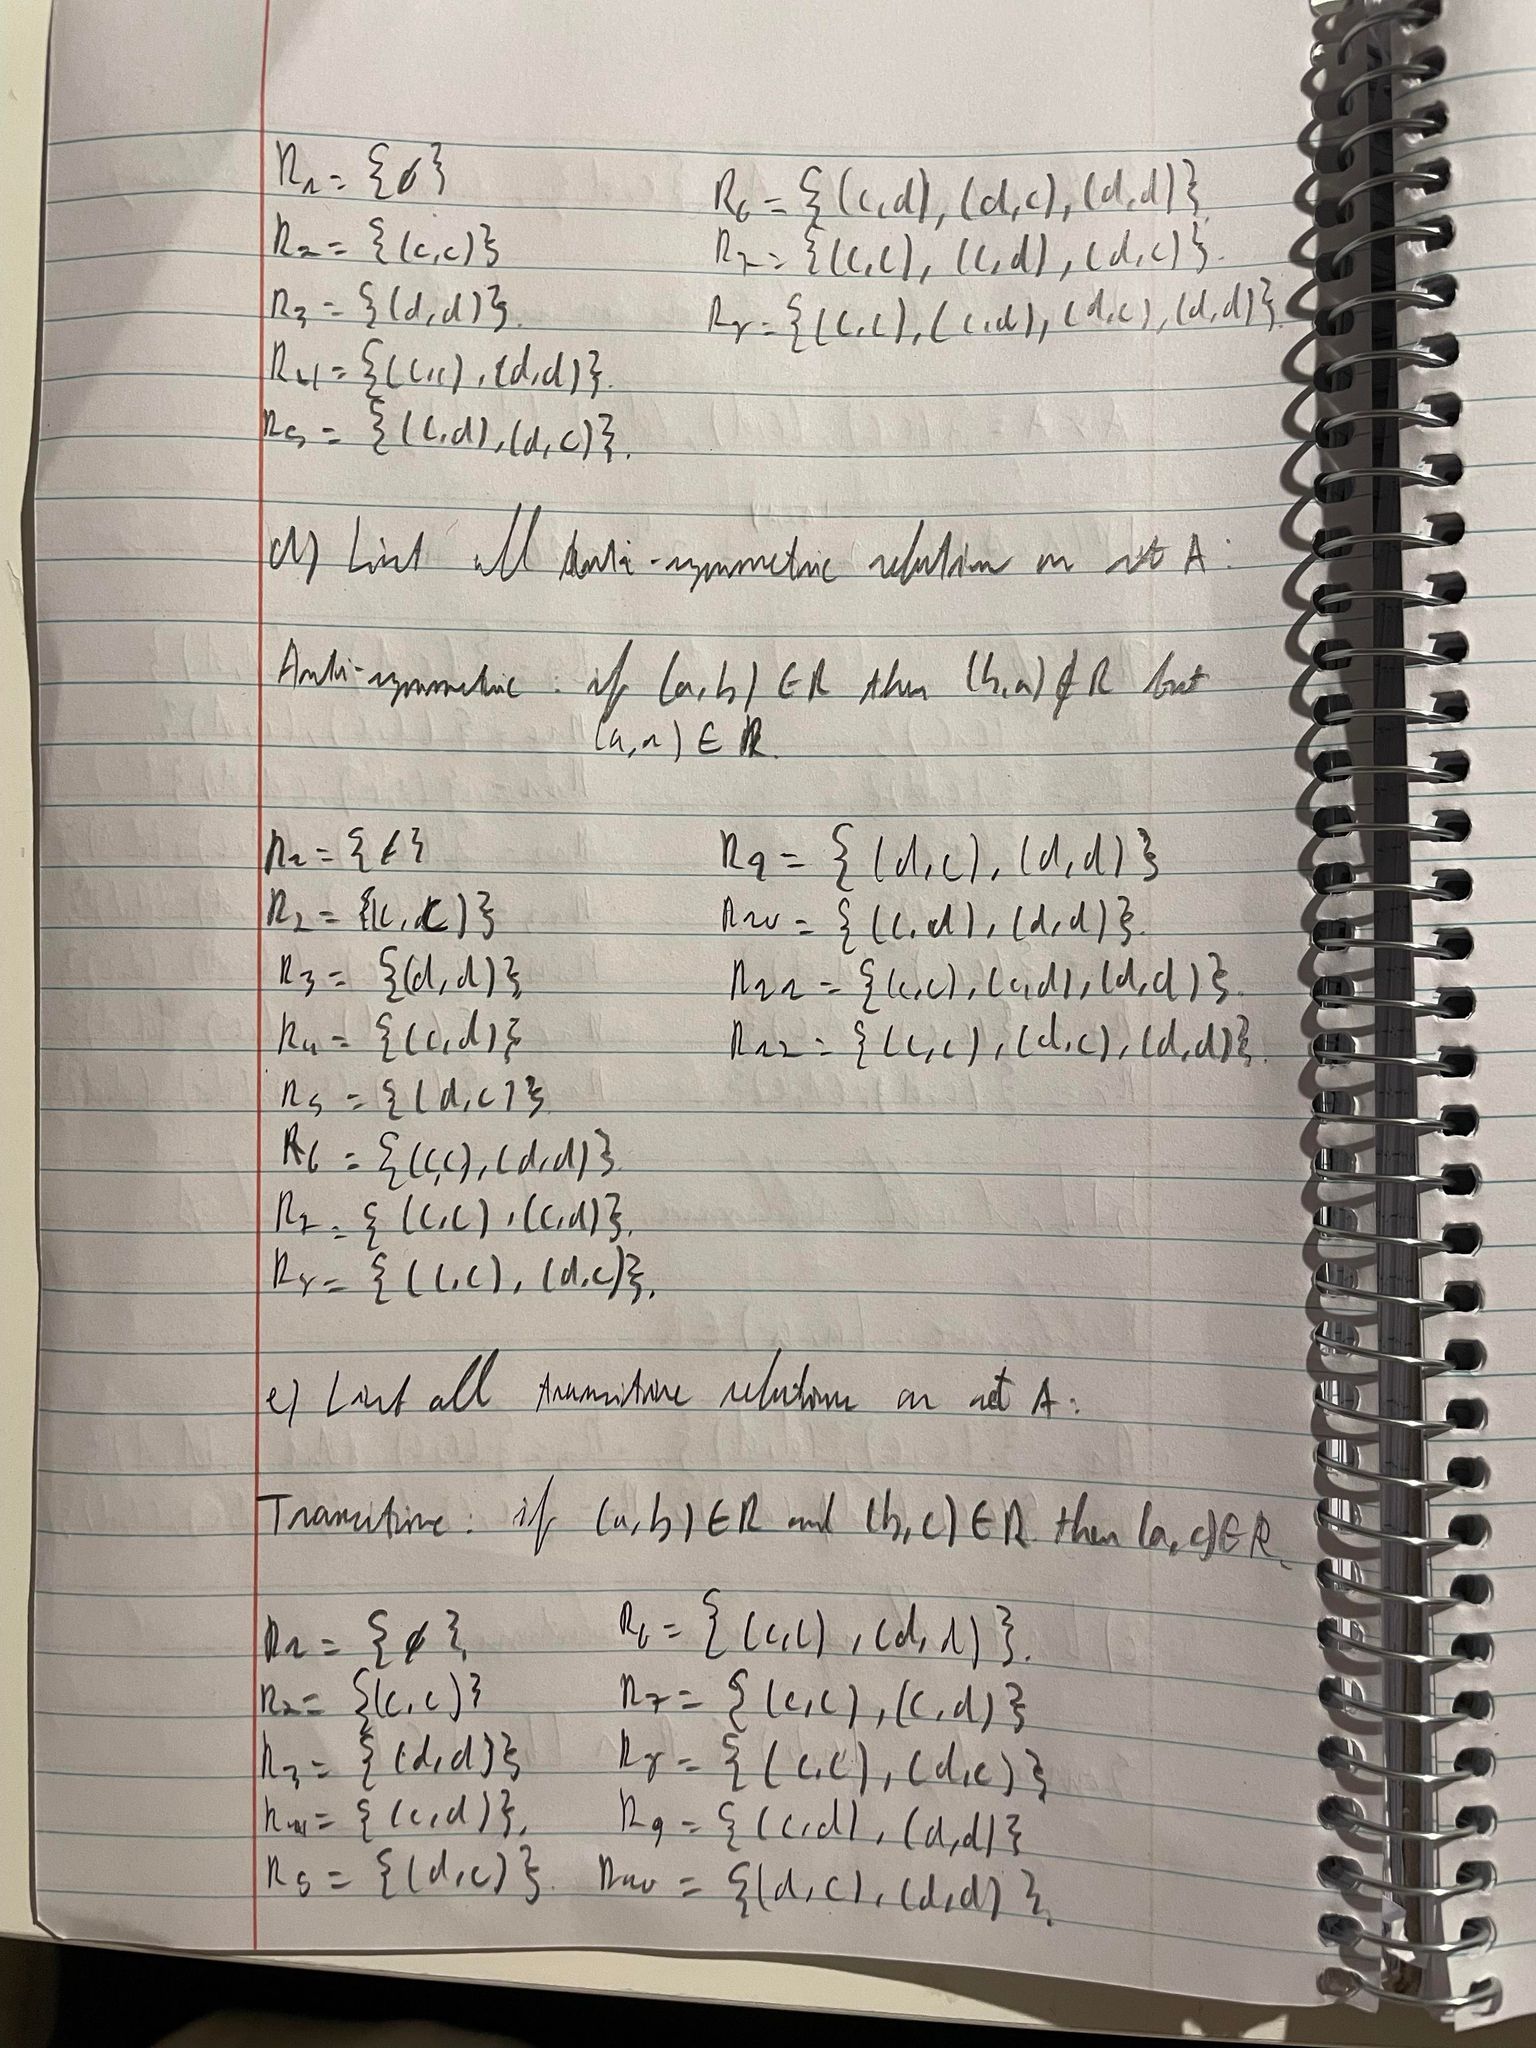 R1 = {ϕ}
R2 = {(c,c)}
R3 = {(d,d)}.
R4 = {(c,c), (d,d)}.
R5 = {(c,d), (d,c)}.
R6 = {(c,d), (d,c), (d,d)}.
R7 = {(c,c), (c,d), (d,c)}.
R8 = {(c,c), (c,d), (d,c), (d,d)}.
d) List all anti-symmetric relation on set A:
Anti-symmetric: if (a,b) ∈ R then (b,a) ∉ R but
(a,a) ∈ R.
R1 = {ϕ}
R2 = {(c,c)}
R3 = {(d,d)}
R4 = {(c,d)}
R5 = {(d,c)}
R6 = {(c,c), (d,d)}
R7 = {(c,c), (c,d)}.
R8 = {(c,c), (d,c)}.
R9 = {(d,c), (d,d)}
R10 = {(c,d), (d,d)}.
R11 = {(c,c), (c,d), (d,d)}.
R12 = {(c,c), (d,c), (d,d)}.
e) List all transitive relations on set A:
Transitive: if (a,b) ∈ R and (b,c) ∈ R then (a,c) ∈ R.
R1 = {ϕ}.
R2 = {(c,c)}
R3 = {(d,d)}
R4 = {(c,d)}.
R5 = {(d,c)}.
R6 = {(c,c), (d,d)}.
R7 = {(c,c), (c,d)}
R8 = {(c,c), (d,c)}
R9 = {(c,d), (d,d)}
R10 = {(d,c), (d,d)}.